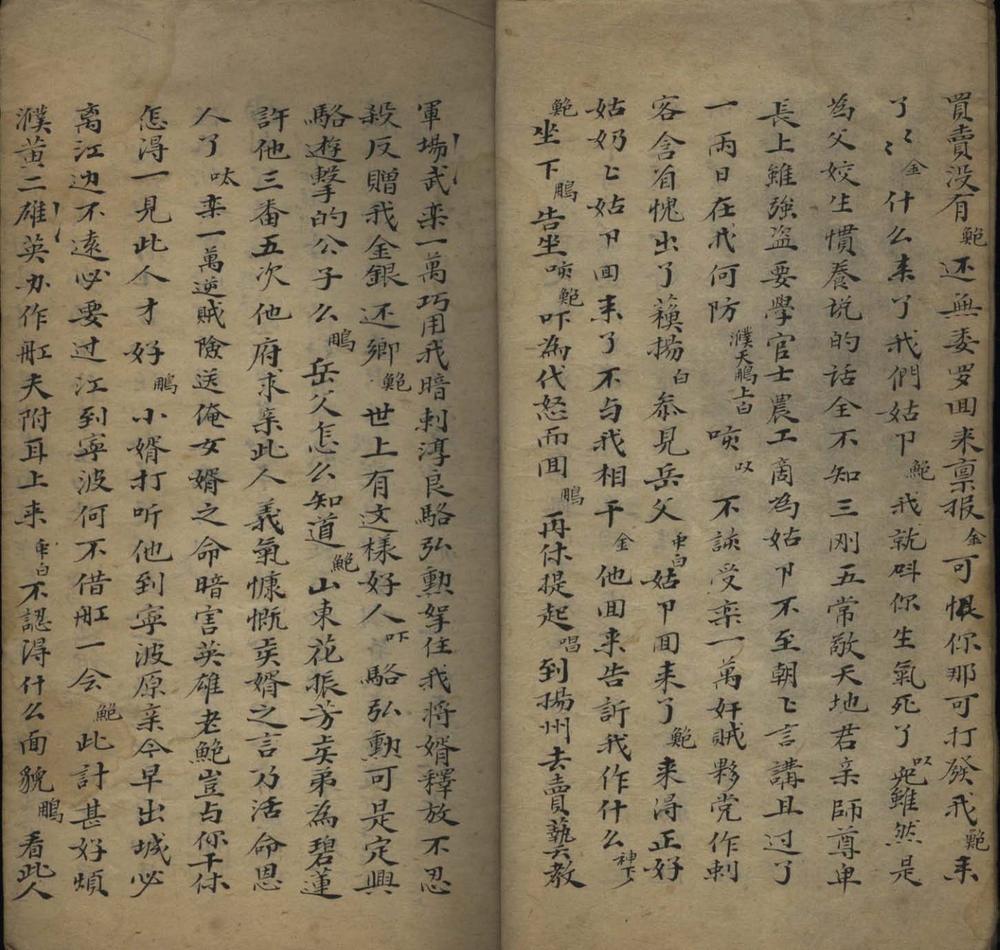 買賣没有鮑还無委罗囬来禀报金可恨你那可打發我鮑来
了〻金什么来了我們姑卩鮑我就叫你生氣死了以鮑雖然是
為父姣生慣養说的话全不知三刚五常敬天地君亲師尊卑
長上雖強盗要學官士農工商為姑卩不至朝〻言講且过了
一兩日在我何防濮天鵬上白唉以不談受栾一萬奸贼夥党作刺
客含羞愧出了蘓揚白叅見岳父鮑白姑卩囬来了鮑来得正好
姑奶〻姑卩囬来了不与我相干金他囬来告訴我作什么神下
鮑坐下鵬告坐唉鮑吓為代怒而囬鵬再休提起唱到揚州去賣藝教
軍場武栾一萬巧用我暗刺淳良駱弘勳拏住我將婿釋放不忍
殺反贈我金銀还鄉鮑世上有这樣好人吓駱弘勳可是定興
駱遊擊的公子么鵬岳父怎么知道鮑山東花振芳賣弟為碧蓮
許他三番五次他府求亲此人義氣慷慨賣婿之言乃活命恩
人了呔栾一萬逆贼險送俺女婿之命暗害英雄老鮑豈与你干休
怎得一見此人才好鵬小婿打听他到寧波原亲今早出城必
离江边不遠必要过江到寧波何不借舡一会鮑此計甚好煩
濮黄二雄英办作舡夫附耳上来鵬白不認得什么面貌鵬看此人